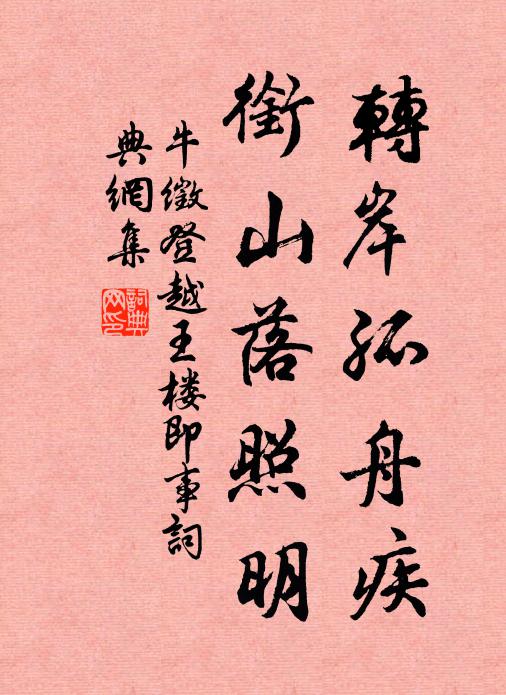 轉岸孤舟疾
銜山落照明
牛徵登越王楼即事詞
典網集
詞典网印